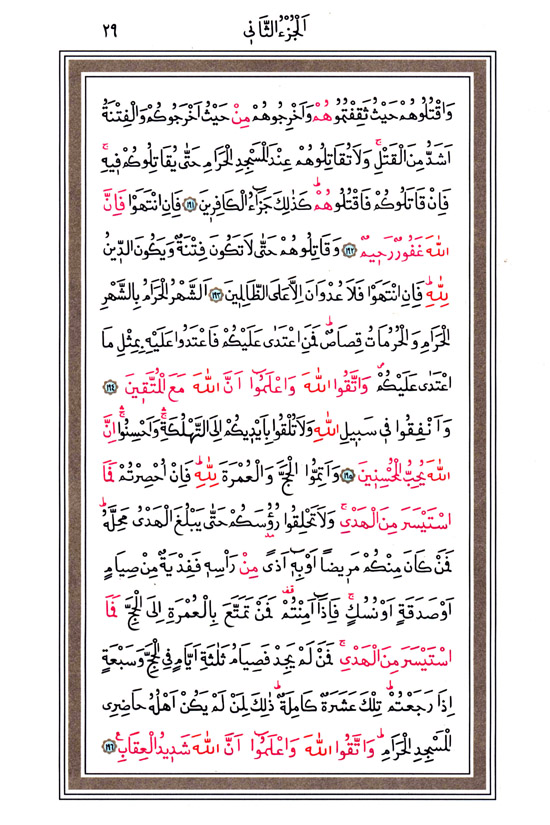 اَلْجُزْءُ الثَّانٖي ٢٩
وَاقْتُلُوهُمْ حَيْثُ ثَقِفْتُمُوهُمْ وَاَخْرِجُوهُمْ مِنْ حَيْثُ اَخْرَجُوكُمْ وَالْفِتْنَةُ
اَشَدُّ مِنَ الْقَتْلِۚ وَلَا تُقَاتِلُوهُمْ عِنْدَ الْمَسْجِدِ الْحَرَامِ حَتّٰى يُقَاتِلُوكُمْ فٖيهِۚ
فَاِنْ قَاتَلُوكُمْ فَاقْتُلُوهُمْؕ كَذٰلِكَ جَزَٓاءُ الْكَافِرٖينَ ﴿١٩١﴾ فَاِنِ انْتَهَوْا فَاِنَّ
اللّٰهَ غَفُورٌ رَحٖيمٌ ﴿١٩٢﴾ وَقَاتِلُوهُمْ حَتّٰى لَا تَكُونَ فِتْنَةٌ وَيَكُونَ الدّٖينُ
لِلّٰهِؕ فَاِنِ انْتَهَوْا فَلَا عُدْوَانَ اِلَّا عَلَى الظَّالِمٖينَ ﴿١٩٣﴾ اَلشَّهْرُ الْحَرَامُ بِالشَّهْرِ
الْحَرَامِ وَالْحُرُمَاتُ قِصَاصٌؕ فَمَنِ اعْتَدٰى عَلَيْكُمْ فَاعْتَدُوا عَلَيْهِ بِمِثْلِ مَا
اعْتَدٰى عَلَيْكُمْۖ وَاتَّقُوا اللّٰهَ وَاعْلَمُٓوا اَنَّ اللّٰهَ مَعَ الْمُتَّقٖينَ ﴿١٩٤﴾
وَاَنْفِقُوا فٖي سَبٖيلِ اللّٰهِ وَلَا تُلْقُوا بِاَيْدٖيكُمْ اِلَى التَّهْلُكَةِۚۛ وَاَحْسِنُواۚۛ اِنَّ
اللّٰهَ يُحِبُّ الْمُحْسِنٖينَ ﴿١٩٥﴾ وَاَتِمُّوا الْحَجَّ وَالْعُمْرَةَ لِلّٰهِؕ فَاِنْ اُحْصِرْتُمْ فَمَا
اسْتَيْسَرَ مِنَ الْهَدْيِۚ وَلَا تَحْلِقُوا رُؤُ۫سَكُمْ حَتّٰى يَبْلُغَ الْهَدْيُ مَحِلَّهُؕ
فَمَنْ كَانَ مِنْكُمْ مَرٖيضًا اَوْ بِهٖٓ اَذًى مِنْ رَاْسِهٖ فَفِدْيَةٌ مِنْ صِيَامٍ
اَوْ صَدَقَةٍ اَوْ نُسُكٍۚ فَاِذَٓا اَمِنْتُمْ۠ فَمَنْ تَمَتَّعَ بِالْعُمْرَةِ اِلَى الْحَجِّ فَمَا
اسْتَيْسَرَ مِنَ الْهَدْيِۚ فَمَنْ لَمْ يَجِدْ فَصِيَامُ ثَلٰثَةِ اَيَّامٍ فِي الْحَجِّ وَسَبْعَةٍ
اِذَا رَجَعْتُمْؕ تِلْكَ عَشَرَةٌ كَامِلَةٌؕ ذٰلِكَ لِمَنْ لَمْ يَكُنْ اَهْلُهُ حَاضِرِي
الْمَسْجِدِ الْحَرَامِؕ وَاتَّقُوا اللّٰهَ وَاعْلَمُٓوا اَنَّ اللّٰهَ شَدٖيدُ الْعِقَابِۚ ﴿١٩٦﴾